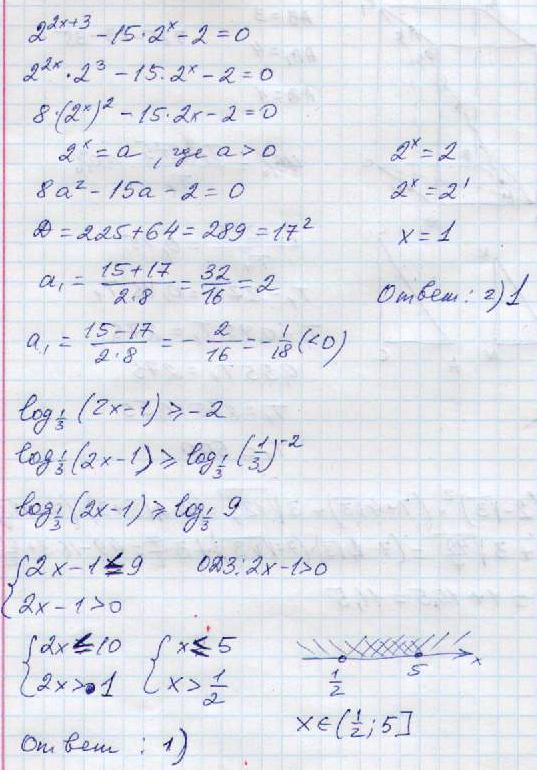 2^{2x+3} - 15·2^x - 2 = 0
2^{2x}·2^3 - 15·2^x - 2 = 0
8·(2^x)^2 - 15·2x - 2 = 0
2^x = a, где a > 0
8a^2 - 15a - 2 = 0
D = 225 + 64 = 289 = 17^2
a_1 = \frac{15+17}{2·8} = \frac{32}{16} = 2
a_1 = \frac{15-17}{2·8} = -\frac{2}{16} = -\frac{1}{18} (<0)
2^x = 2
2^x = 2^1
x = 1
Ответ: 2) 1
log_{\frac{1}{3}} (2x-1) ≥ -2
log_{\frac{1}{3}} (2x-1) ≥ log_{\frac{1}{3}} (\frac{1}{3})^{-2}
log_{\frac{1}{3}} (2x-1) ≥ log_{\frac{1}{3}} 9
{ 2x-1 ≤ 9 ОДЗ: 2x-1>0
2x-1>0
{ 2x ≤ 10 { x ≤ 5
2x > 1 x > \frac{1}{2}
\frac{1}{2} 5 x
x ∈ (\frac{1}{2}; 5]
Ответ: 1)